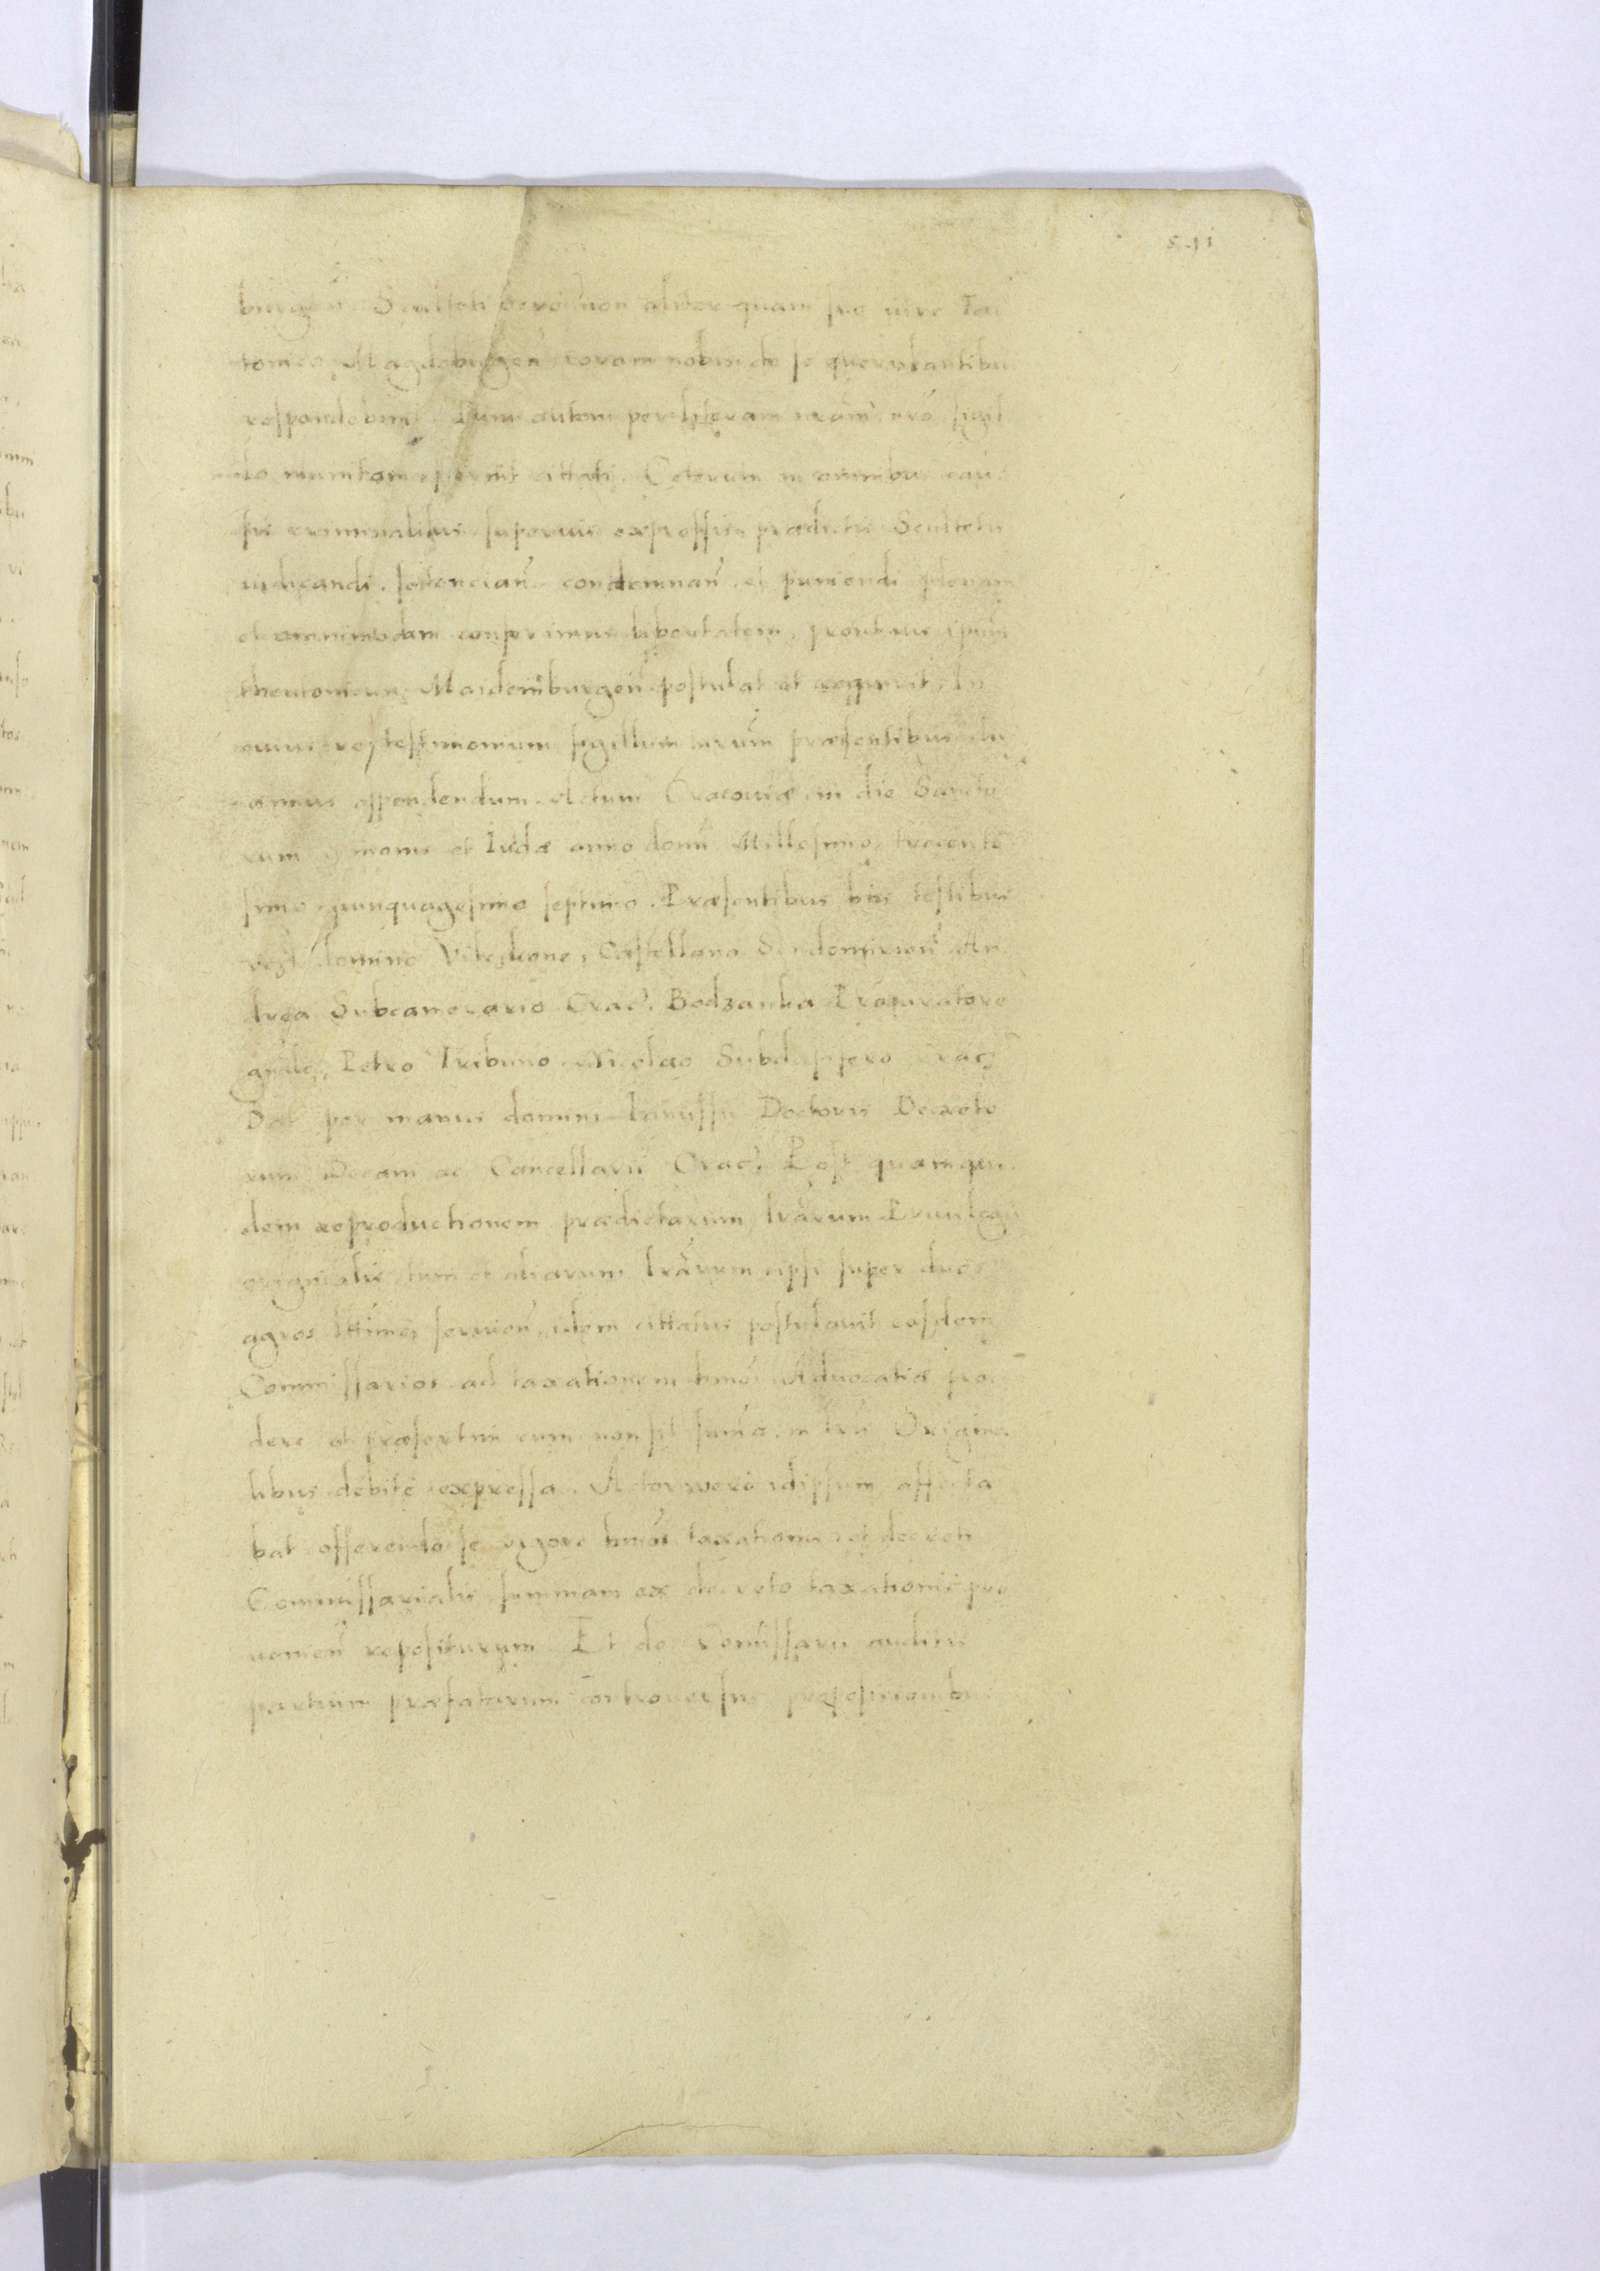 burgeñ Sculteti vero non aliter quam pro iure Teu
tonico Magdeburgeñ coram nobis de se querulantibus
respondebunt. Dum autem per literam nram nrõ sigil
lo munitam fuerint cittati. Ceterum in omnibus cau
sis criminalibus superius expressis praedictis Scultetis
iudicandi, sentenciañ condemnañ et puniendi plenam
et omnimodam conferimus libertatem, prout ius ipsum
theutonicum Maidemburgeñ postulat et requirit. In
cuius rei testimonium sigillum nrum praesentibus du
ximus appendendum. Actum Cracoviae in die Sancto
rum Simonis et Iudae anno domi Millesimo trecente
simo quinquagesimo septimo. Praesentibus his testibus
domino castellano Sandomirieñ An
drea Subcamerario Crac. Bodzanta Procuratore
gñali, Petro Tribuno Nicolao Subdapifero Crac.
Dat per manus domini Doctoris Decreto
rum Decani ac Cancellarii Crac. Post quam qui
dem reproductionem praedictarum lrarum Privilegii
originalis tum et aliarum lrarum ipsi super duos
agros servieñ, idem cittatus postulavit eosdem
Commissarios ad taxationem hmõi Advocatiae pro
dere et praesertim cum non sit summa in lris Origina
libus debite expressa. Actor vero idipsum affecta
bat offerendo se vigore hmõi taxationis et decreti
Commissarialis summam ex decreto taxationis pro
venieñ repositurum. Et dõ Comissarii auditis
partium praefatarum controversiis propositionibus